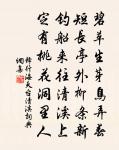 碧草生芽鳥弄
短長亭外柳條新
釣船來往清溪上
定有桃花洞里人
釋行海天台清溪詞典